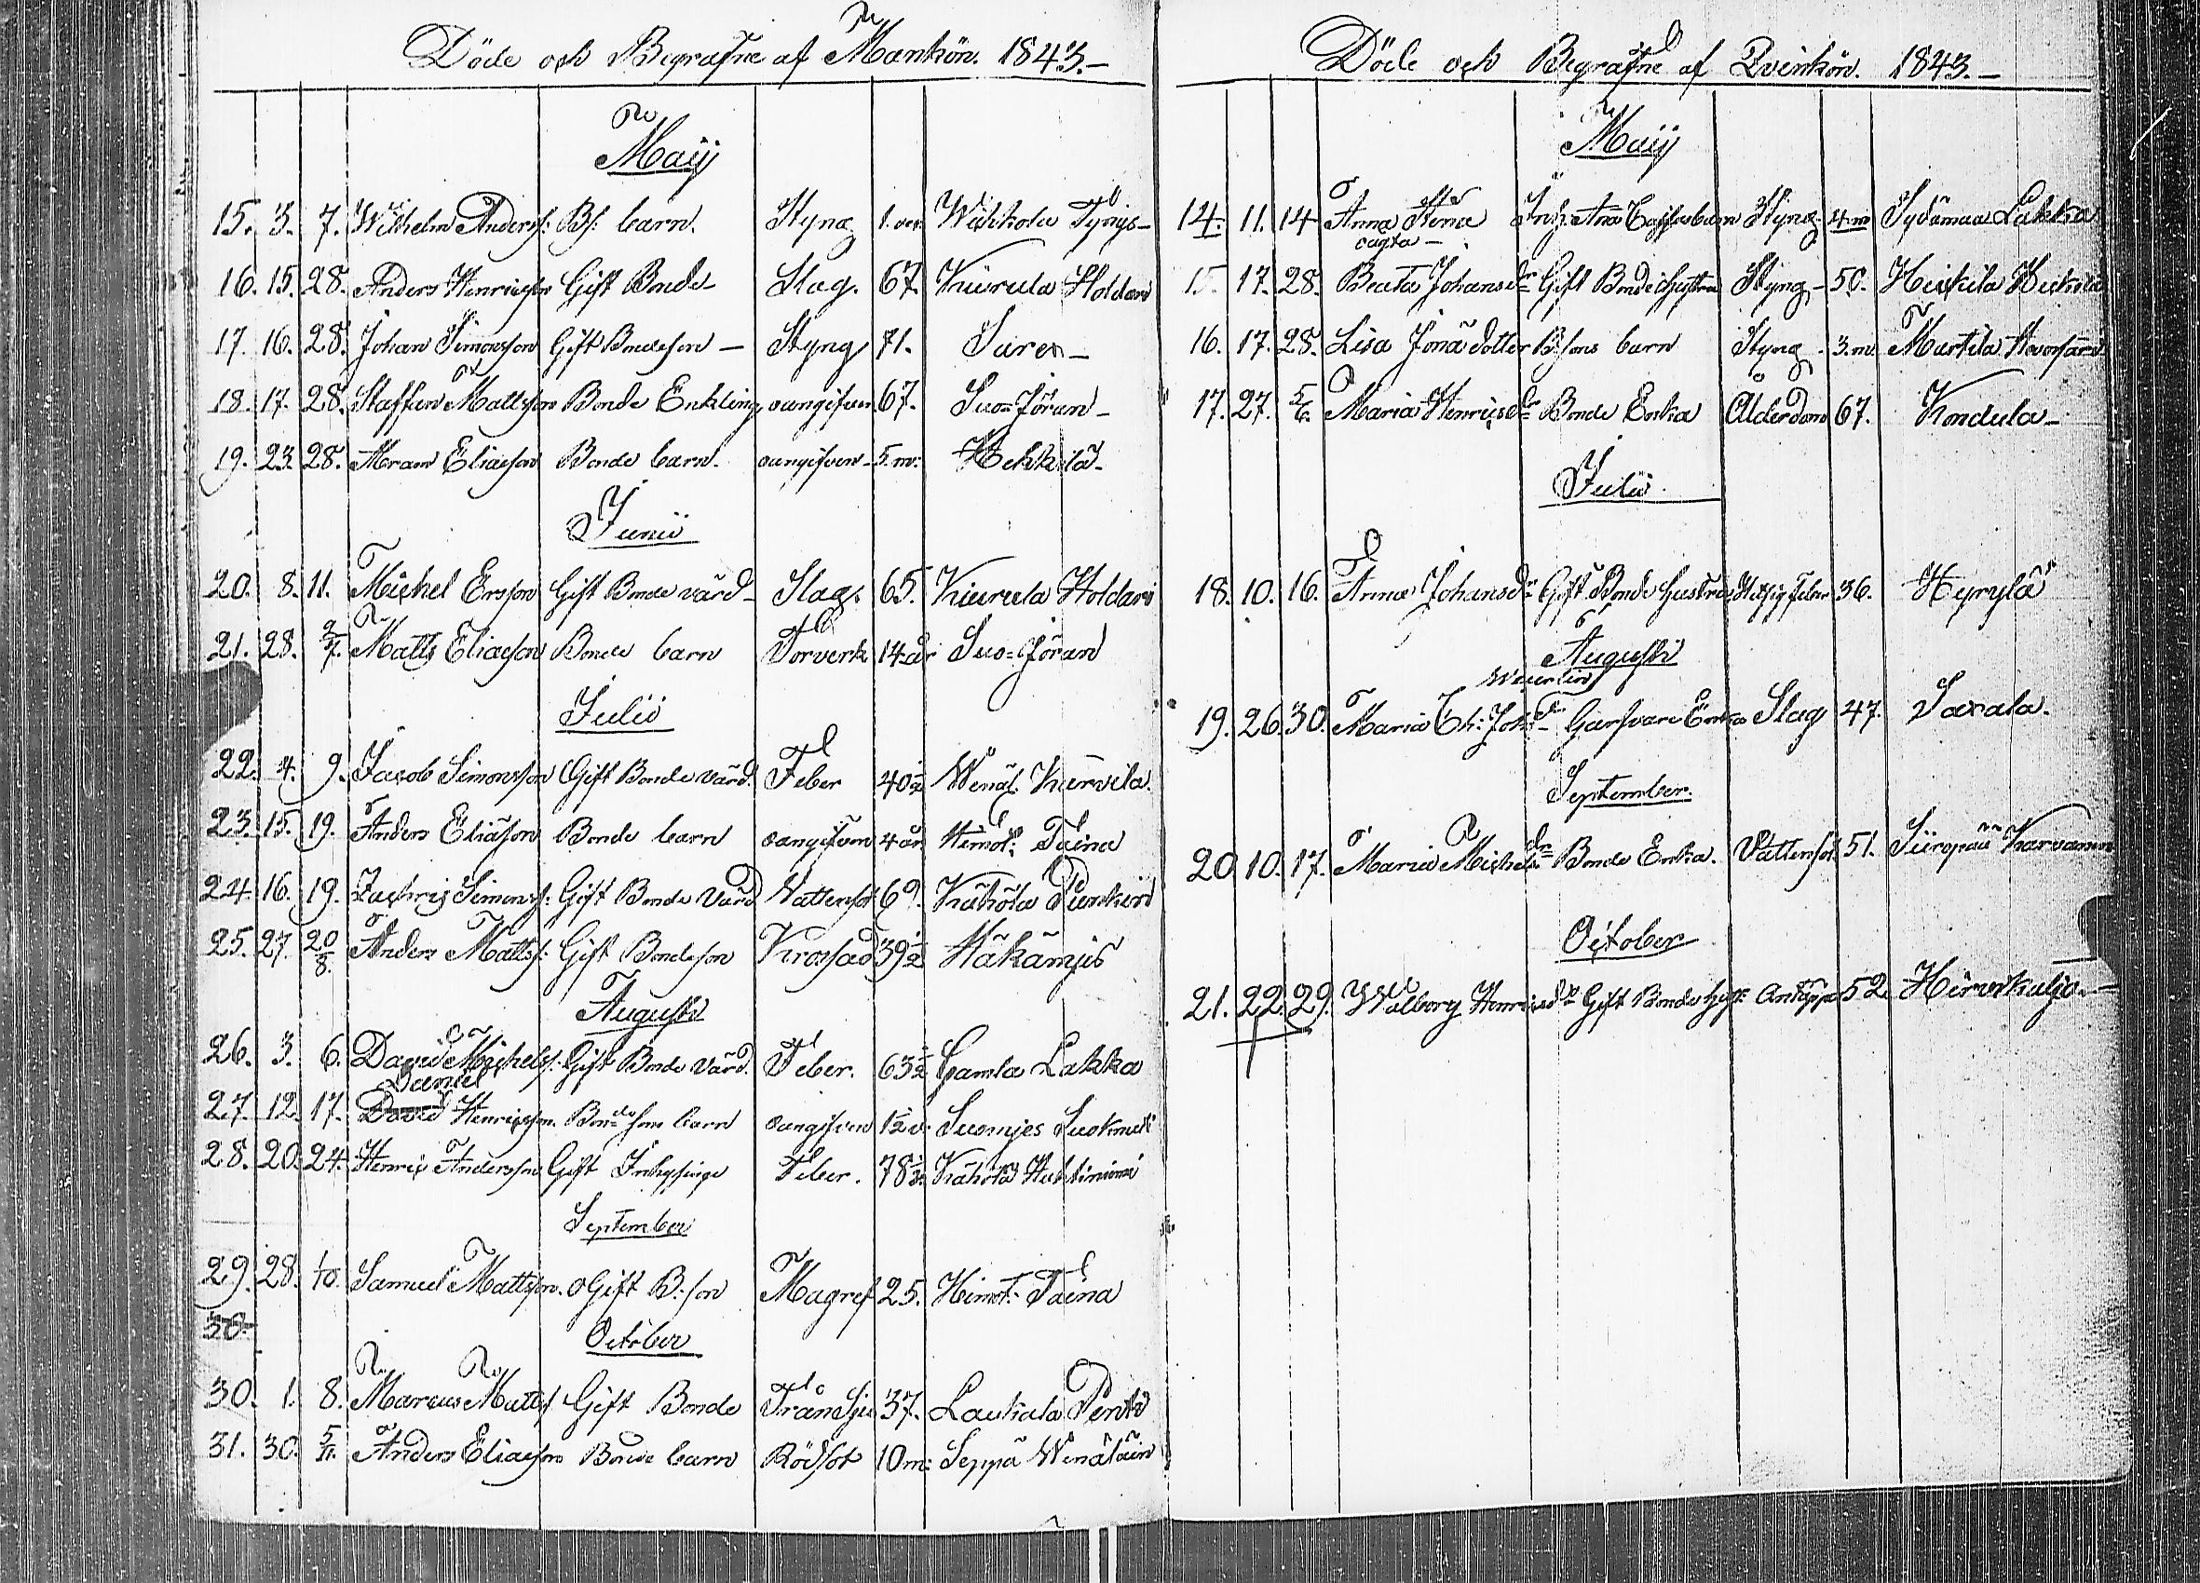 Döde och Begrafne af Mankön. 1843.–
Maij
15. 3. 7. Wilhelm Anderss: Bs: barn. Styng Wäkkola
16. 15. 28. Anders Henricsson Gift Bonde Slag. 67. Kiurula Holdari
17. 16. 28. Johan Simonsson Gift Bondeson – Styng 71. Suren –
18. 17. 28. Staffan Mattsson Bonde Enkling oangifven 67. Suo=Jöran –
19. 23. 28. Abram Eliasson Bonde barn. oangifven 5.m: Hekkilä –
Junii
20. 8. 11. Michel Ersson Gift Bonde värd – Slag. 65. Kiurula Holdari
21. 28. 2/7. Matts Eliasson Bonde barn Torverk 14 år Suo=Jöran
Julii
22. 4. 9. Jacob Simonsson Gift Bonde värd. Feber 40½ Wenäl. Kurvila.
23. 15. 19. Anders Eliasson Bonde barn oangifven 4 år Himot: Taina
24. 16. 19. Zachris Simonss: Gift Bonde Värd Vattensot 69. Kähölä
25. 27. 20/8. Anders Mattss: Gift Bondeson 39½ Häkämjes
Augusti
26. 3. 6. David Michelss: Gift Bonde Värd. Feber. 63½ Gamla Lakka
Daniel
27. 12. 17. David Henricsson. Bondesons barn oangifven Suomjes
28. 20. 24. Henric Andersson Gift Inhysinge Feber. 78½ Kähölä
September
29. 28. 1/10. Samuel Mattsson. Ogift B:son Magref 25. Himot: Taina
30.
October
30. 1. 8. Marcus Mattss Gift Bonde Trånsju 37. Laukala Pentti
31. 30. 5/11. Anders Eliasson Bonde barn Rödsot 10 m: Seppä Wenäläin
Döde och Begrafne af Qvinkön. 1843. –
Maij
14. 11. 14 Anna Stina Styng 4 m Sydänmaa Lakka
oägta –
15. 17. 28. Beata Johansdr Gift Bonde Hustru Styng – 50. Heikila
16. 17. 28. Lisa Jonä dotter B:sons barn Styng. 3.m. Martila
17. 27. 5/6. Maria Henricsdr Bonde Enka Ålderdom 67. Kondula –
Julii
18. 10. 16. Anna Johansdr Gift Bonde hustru Hetsig feber 36. Hyrylä
Augusti
19. 26. 30. Maria Ch: Joh:dr Garfvare Enka Slag 47. Saxala.
September.
20. 10. 17. Maria Michelsdr Bonde Enka. Vattensot 51. Karvanen
October
21. 22. 29. Walborg Henricsdr Gift Bonde 52. Hirvikaljo. –